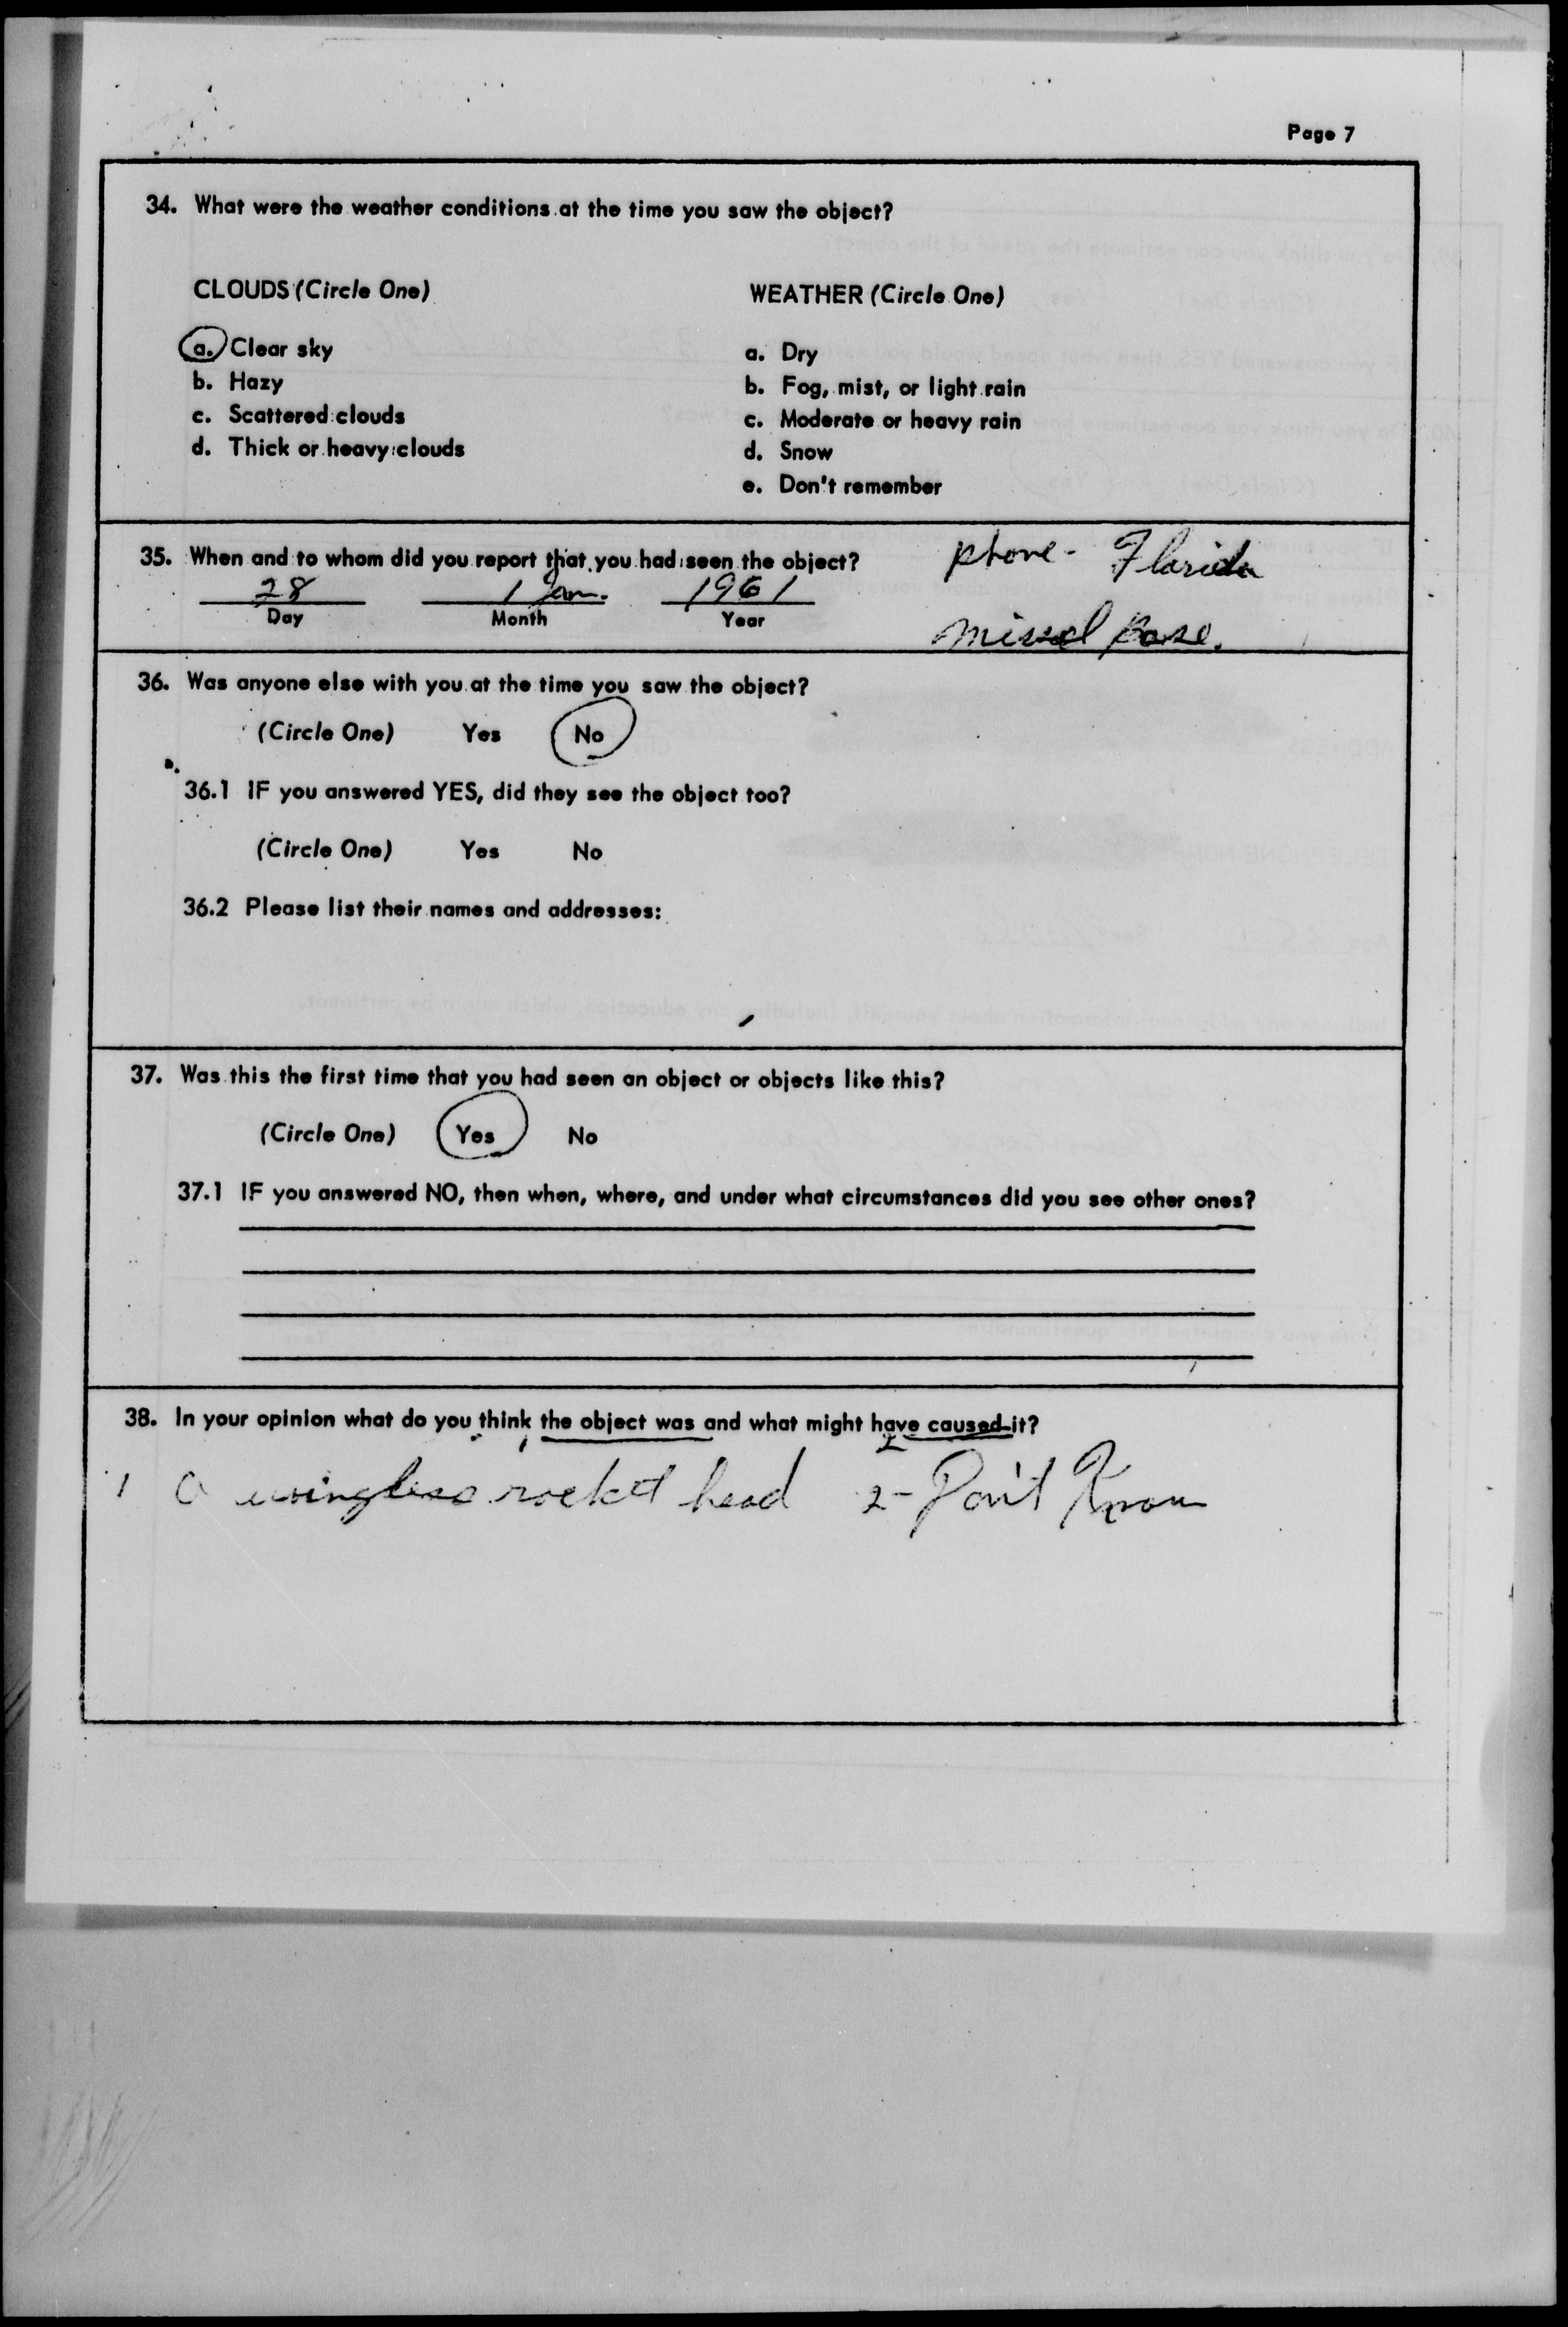 Page 7
34. What were the weather conditions at the time you saw the object?
CLOUDS (Circle One)
a. Clear sky
b. Hazy
c. Scattered clouds
d. Thick or heavy clouds
WEATHER (Circle One)
a. Dry
b. Fog, mist, or light rain
c. Moderate or heavy rain
d. Snow
e. Don't remember
35. When and to whom did you report that you had seen the object?
28 1 Jan. 1961
Day Month Year
phone - Florida
missel Base.
36. Was anyone else with you at the time you saw the object?
(Circle One) Yes No
36.1 IF you answered YES, did they see the object too?
(Circle One) Yes No
36.2 Please list their names and addresses:
37. Was this the first time that you had seen an object or objects like this?
(Circle One) Yes No
37.1 IF you answered NO, then when, where, and under what circumstances did you see other ones?
38. In your opinion what do you think the object was and what might have caused it?
1 2
1 a wingless rocket head 2- Don't Know